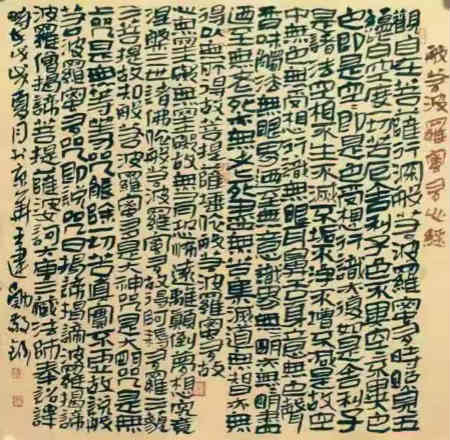 般若波羅蜜多心經
觀自在菩薩行深般若波羅蜜多時照見五
蘊皆空度一切苦厄舍利子色不異空空不異色
色即是空空即是色受想行識亦復如是舍利子
是諸法空相不生不滅不垢不淨不增不減是故空
中無色無受想行識無眼耳鼻舌身意無色聲
香味觸法無眼界乃至無意識界無無明亦無無明盡
乃至無老死亦無老死盡無苦集滅道無智亦無
得以無所得故菩提薩埵依般若波羅蜜多故
心無罣礙無罣礙故無有恐怖遠離顛倒夢想究竟
涅槃三世諸佛依般若波羅蜜多故得阿耨多羅三藐
三菩提故知般若波羅蜜多是大神咒是大明咒是無
上咒是無等等咒能除一切苦真實不虛故說般
若波羅蜜多咒即說咒曰揭諦揭諦波羅揭諦
波羅僧揭諦菩提薩婆訶唐三藏法師奉詔譯
時在戊戌夏月於京華王建勳敬錄